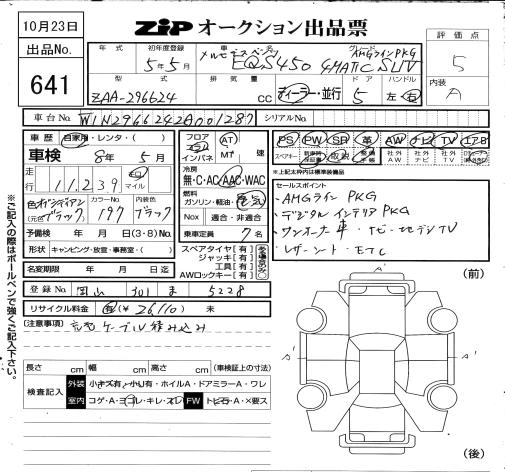 10月23日
出品No.
641
ZIP オークション出品票
評価点
5
内装
A
年式
初年度登録
5年5月
車名
メルセデスベンツ
EQS450 4MATIC SUV
グレード
AMGラインPKG
型式
ZAA-296624
排気量
cc
ディーラー・並行
ドア
5
ハンドル
左・右
車台No.
W1N2966242A001287
シリアルNo.
車歴
自家用・レンタ・( )
車検 8年5月
走行
11,239
km
マイル
色
(元色)
オブシディアンブラック
カラーNo.
197
内装色
ブラック
予備検 年 月 日 (3・8)No.
形状 キャンピング・放宣・事務室・( )
名変期限 年 月 日迄
登録No. 岡山 301 ま 5228
リサイクル料金 有(¥26,110) 未
フロア
コラム
インパネ
AT
MT
速
冷房
無・C・AC・AAC・WAC
燃料
ガソリン・軽油・電気
Nox 適合・非適合
乗車定員 7名
スペアタイヤ[有]
ジャッキ[有]
工具[有]
AWロックキー[有]
PS PW SR 革 AW ナビ TV エアB
スペアキー 新車時保証書 取説 整備手帳 社外AW 社外ナビ 社外TV
※上記太枠内は標準装備品
セールスポイント
・AMGライン PKG
・デジタル インテリア PKG
・ワンオーナー車・ナビ・地デジTV
・レザーシート・ETC
[注意事項]
充電ケーブル積み込み
長さ cm 幅 cm 高さ cm (車検証上の寸法)
検査記入
外装 小キズ有・小凹有・ホイルA・ドアミラーA・ワレ
室内 コゲ・A・ヨゴレ・キレ・スレ FW トビ石・A・×要ス
※ご記入の際はボールペンで強くご記入下さい。
(前)
A'
A'
A'
(後)